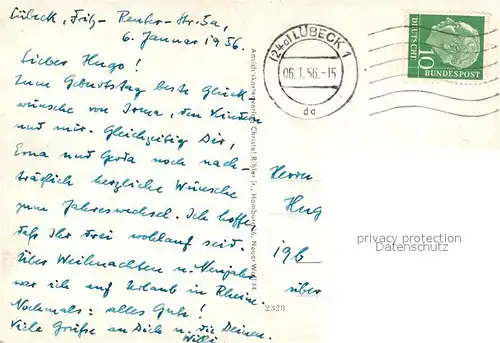 Lübeck, Fritz-Reuter-Str. 3a,
6. Januar 1956.
Lieber Hugo!
Zum Geburtstag beste Glück-
wünsche von Irma, den Kindern
und mir. Gleichzeitig Dir,
Erna und Gerda noch nach-
träglich herzliche Wünsche
zum Jahreswechsel. Ich hoffe,
daß Ihr drei wohlauf seid.
Über Weihnachten u. Neujahr
war ich auf Urlaub in Rhein
Nochmals: alles Gute!
Viele Grüße an Dich u. die Deinen.
Willi
Ansichtskartenverlag Christel Rihler jr., Hamburg 36, Neuer Wall 44
2328
(24a) LÜBECK 1
06.1.56.-15
da
DEUTSCHE
10
BUNDESPOST
Herrn
Hug
19b
über
privacy protection
Datenschutz